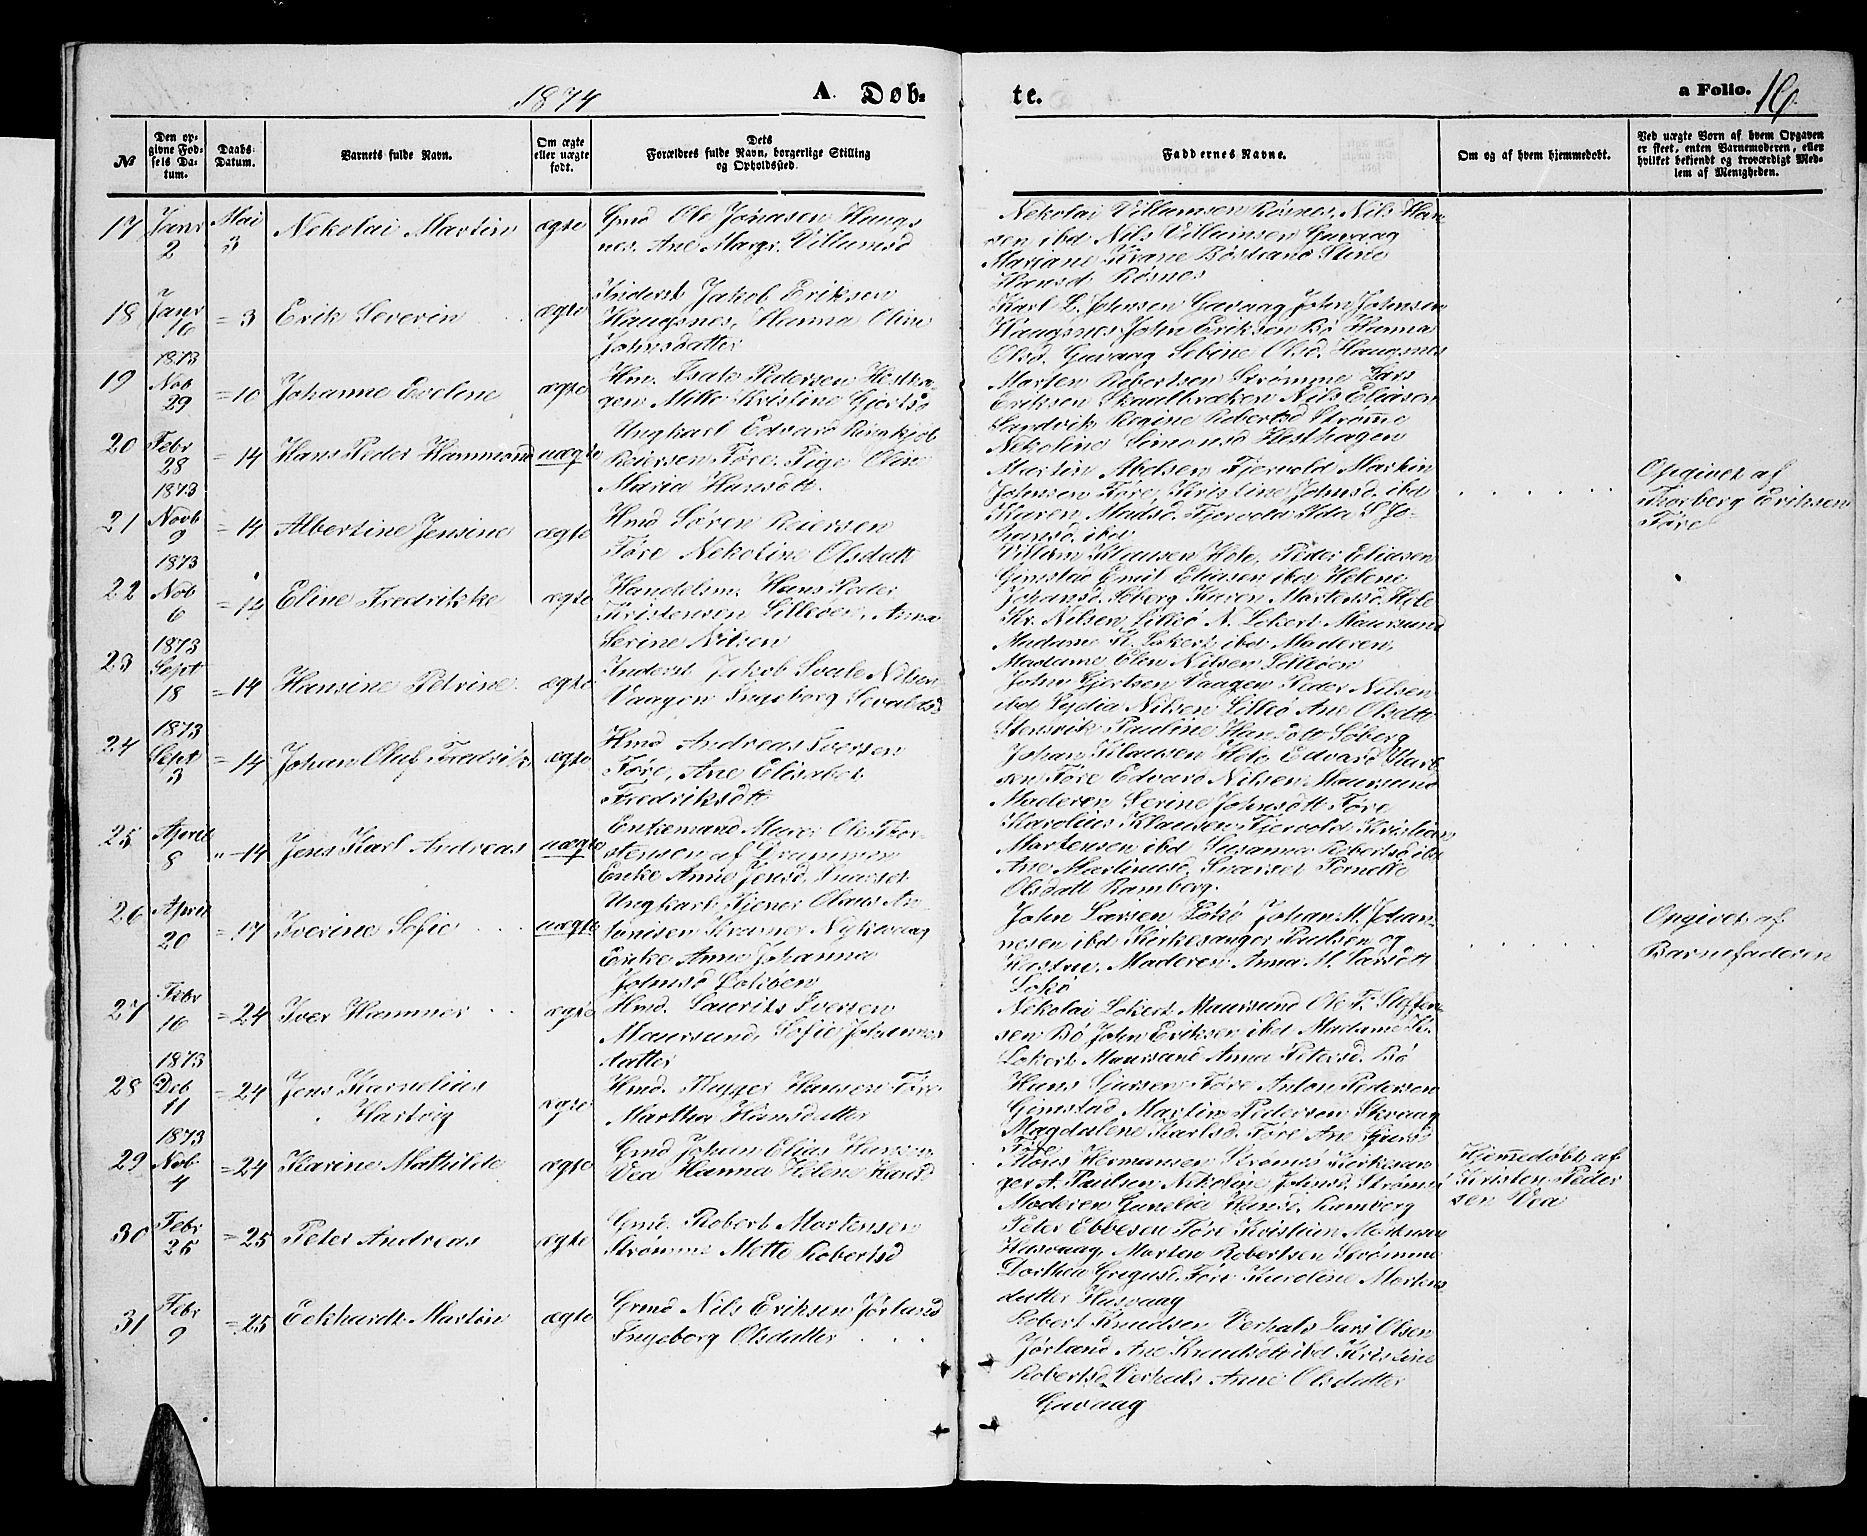 1874
A. Døb-
te.
a Folio. 16.
№
Den op-
givne Fød-
sels Da-
tum.
Daabs-
Datum.
Barnets fulde Navn.
Om ægte
eller uægte
født.
Dets
Forældres fulde Navn, borgerlige Stilling
og Opholdssted.
Faddernes Navne.
Om og af hvem hjemmedøbt.
Ved uægte Børn af hvem Opgaven
er skeet, enten Barnemoderen, eller
hvilket bekjendt og troværdigt Med-
lem af Menigheden.
17 Janr 2 Mai 3 Nekolai Martin ægte
Gmd Ole Jonasen Haugs
nes, Ane Margr. Villumsd
Nekolai Villumsen Røsnes, Nils Han-
sen ibd Nils Villumsen Guvaag
Mariane Krane Bøstrand Stine
Hansd. Røsnes
18 Janr 10 = 3 Erik Severin ægte
Inderst Jakob Eriksen
Haugsnes, Hanna Oline
Johnsdatter
Karl L. Petersen Guvaag John Johnsen
Haugsnes John Eriksen Bø Hanna
Olsd. Guvaag Sebine Olsd. Haugsnes
19 1873 Nov 29 = 10 Johanne Eveline ægte
Hm. Isak Pedersen Hestha-
gen Mette Kristine Gjertsd
Marten Robertsen Strømme Lars
Eriksen Skaelbræken Nils Eliasen
Sandvik Regine Robertsd Strømme
Nekoline Simonsd Hesthagen
20 Febr 28 = 14 Hans Peder Hammond uægte
Ungkarl Edvard Ringkjøb
Reiersen Føre, Pige Olin
Maria Hansdtt.
Martin Abelsen Fjervold Martin
Johnsen Føre, Kristine Johnsd. ibd
Karen Madsd. Fjervold Ida S Jo-
hansd. ibd
Opgivet af
Thorberg Eriksen
Føre
21 1873 Novb 9 = 14 Albertine Jensine ægte
Hmd Søren Reiersen
Føre Nekoline Olsdatt
Villum Klausen Hole, Peder Eliasen
Gimstad Emil Eliasen ibd Helene
Johansd. Søberg Karen Martesd. Hole
22 1873 Nob 6 = 14 Eline Fredrikke ægte
Handelsm. Hans Peder
Kristensen Lilleøen, Anna
Serine Nilsen
Kr. Nilsen Lilleø N. Lokert Maursund
Madame K. Lokert ibd Moderen,
Madame Elen Nilsen Lilleøen
23 1873 Sept 18 = 14 Hansine Petrine ægte
Inderst Jakob Svale Nilsen
Vaagen Ingeborg Sevaldsd
John Gjertsen Vaagen Peder Nilsen
ibd Lydia Nilsen Lilleø Ane Olsdttr
Stensvik Pauline Hansdtt Søberg
24 1873 Sept 3 = 14 Johan Oluf Fredrik ægte
Hmd Andreas Iversen
Føre, Ane Elisabet
Fredriksdtt
Johan Klausen Hole Edvard
sen Føre Edvard Nilsen Maursund
Moderen Serine Johnsdtt Føre
25 April 8 = 14 Jens Karl Andreas uægte
Enkemand Murer Ole Thor-
stensen af Drammen
Enke Anne Jensd.
Karolius Klausen Fjervold Kristian
Martensen ibd Susanna Robertsd ibd
Ane Martinusd. Pernelle
Olsdatt Ramberg.
26 April 20 = 17 Iverine Sofie uægte
Ungkarl Tjener Olaus An-
tonisen Nykvaag
Enke Anne Johanna
Johnsd
John Larsen Johan M. Johan-
nesen ibd Kirkesanger Paulsen og
Hustru, Moderen Anna M. Larsdtt
Opgivet af
Barnefaderen
27 Febr 16 = 24 Iver Hammer ægte
Hmd. Laurits Iversen
Maursund, Sofie Johannes
datter
Nekolai Lokert Maursund Ole T. Steffen-
sen Bø John Eriksen ibd Madame K.
Lokert Maursund Anna Petersd. Bø
28 1873 Deb 11 = 24 Jens Kornelius
Hartvig ægte
Hmd. Flygger Hansen Føre
Martha Hansdatter
Hans Føre Anton Pedersen
Gimstad Martin Pedersen Skvaag
Magdalene Karlsd. Føre Ane
Føre
29 1873 Nob 4 = 24 Karine Mathilde ægte
Gmd Johan Elias Hansen
Vea Hanna Helene Hansd
Mons Hermansen Strømø Kirkesan
ger A. Paulsen Nikoline Johnsd. Strømø
Moderen Gunelia Hansd. Ramberg
Hjemmedøbt af
Kristen Peder
sen Vea
30 Febr 26 = 25 Peter Andreas ægte
Gmd. Robert Mortensen
Strømme Mette Robertsd
Peter Ebbesen Føre Kristian Mortensen
Husvaag, Morten Robertsen Strømme
Dorthea Gregusd. Føre Karoline Mortens
datter Husvaag
31 Febr 9 = 25 Eckhardt Martin ægte
Grmd Nils Eriksen Jørland
Ingeborg Olsdatter
Robert Knudsen Verhals Lars Olsen
Jørland Ane Knudsdtr ibd Kristine
Robertsd Verhals Anne Olsdatter
Guvaag